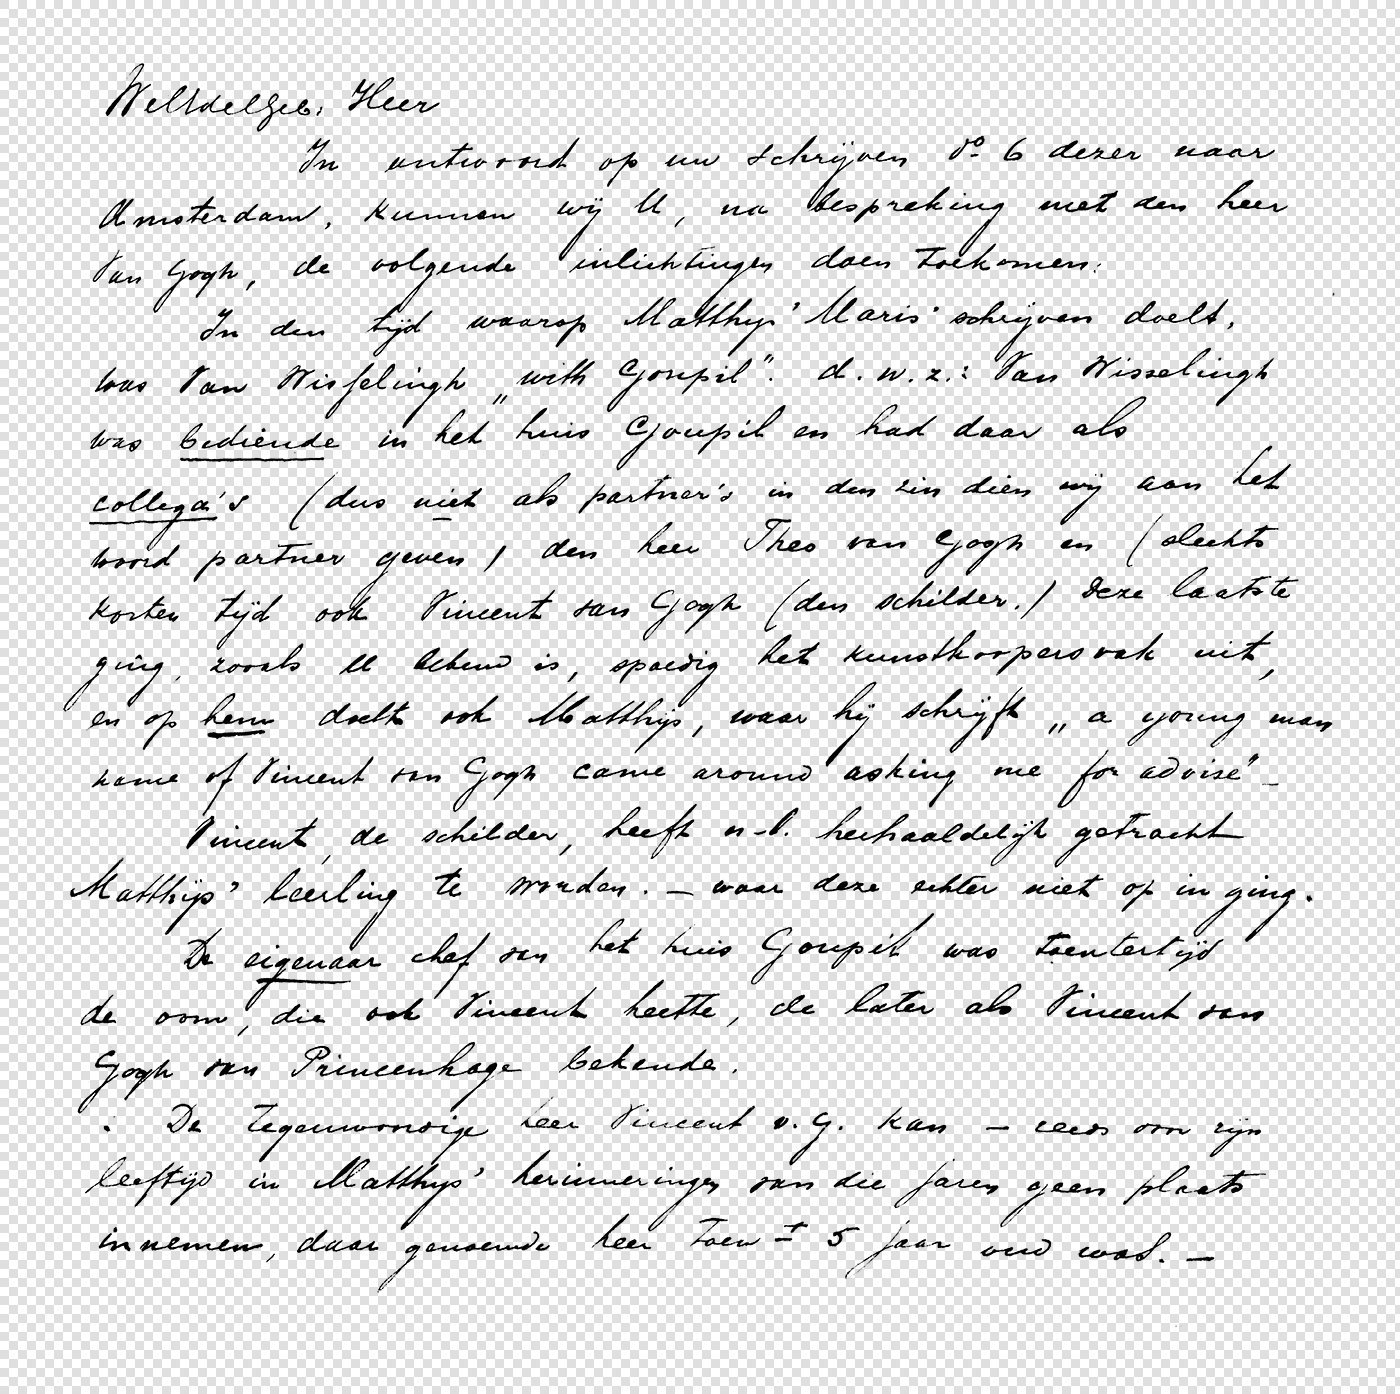 WelEdelGeb. Heer
In antwoord op uw schrijven do 6 dezer naar
Amsterdam, kunnen wij U, na bespreking met den heer
Van Gogh, de volgende inlichtingen doen toekomen:
In den tijd waarop Matthijs' Maris' schrijven doelt,
was Van Wisselingh „with Goupil". d.w.z.: Van Wisselingh
was bediende in het huis Goupil en had daar als
collega's (dus niet als partner's in den zin dien wij aan het
woord partner geven) den heer Theo van Gogh en (slechts
korten tijd ook Vincent van Gogh (den schilder.) Deze laatste
ging, zooals U bekend is, spoedig het kunstkoopersvak uit,
en op hem doelt ook Matthijs, waar hij schrijft „a young man
name of Vincent van Gogh came around asking me for advise" –
Vincent, de schilder, heeft n-l. herhaaldelijk getracht
Matthijs' leerling te worden. – waar deze echter niet op in ging.
De eigenaar chef van het huis Goupil was toentertijd
de oom, die ook Vincent heette, de later als Vincent van
Gogh van Princenhage bekende.
De tegenwoordige heer Vincent v. G. kan – reeds om zijn
leeftijd in Matthijs' herinneringen van die jaren geen plaats
innemen, daar genoemde heer toen ± 5 jaar oud was. –